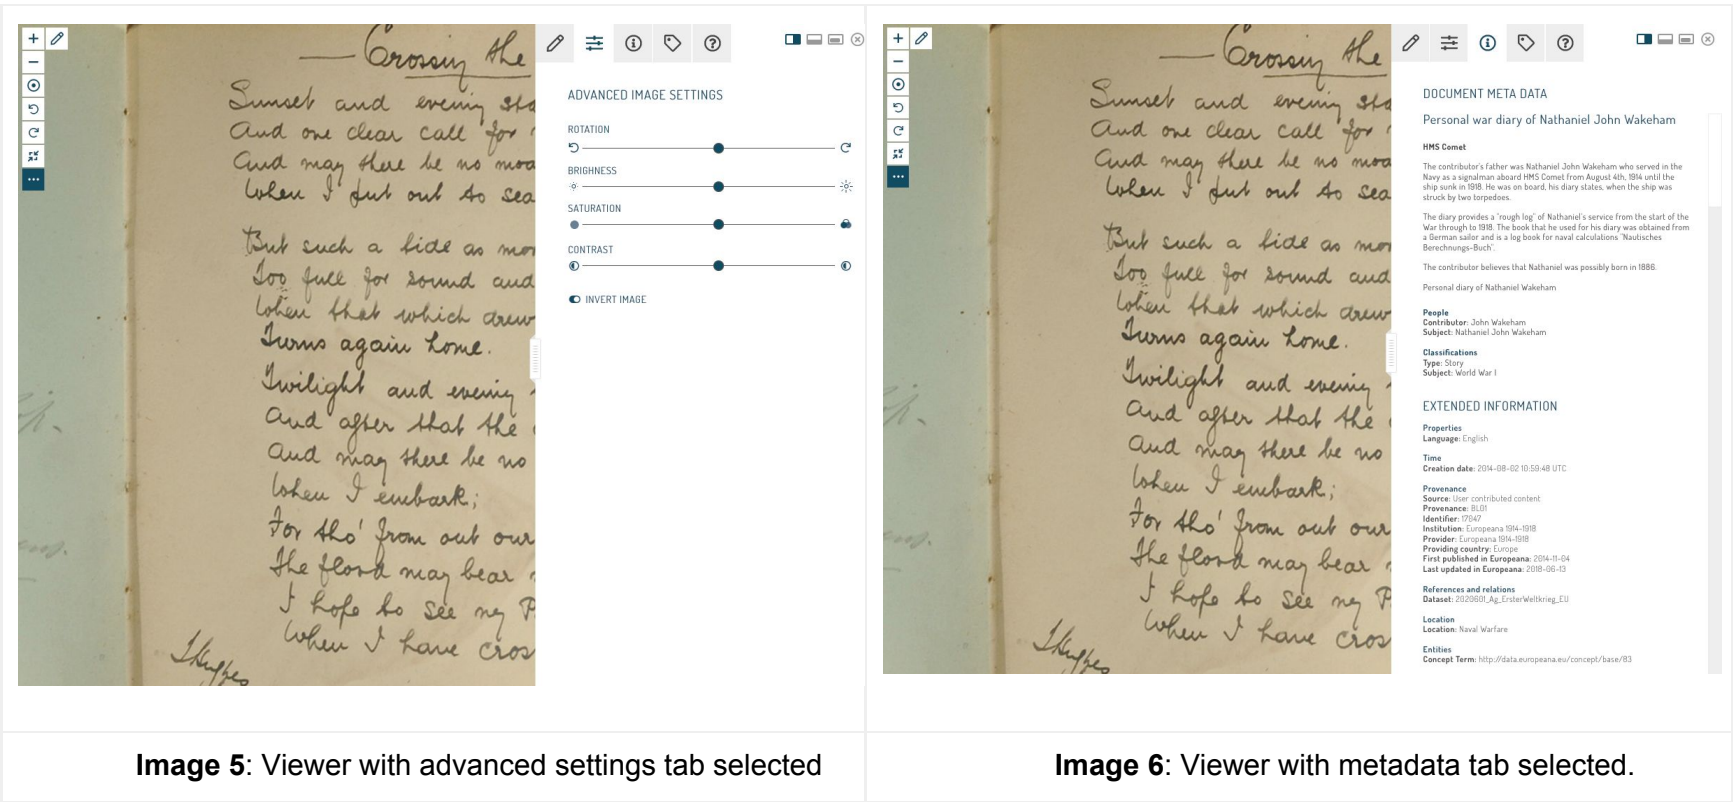 Crossing the
Sunset and evening sta
And one clear call for
And may there be no moa
When I put out to sea
But such a tide as mov
Too full for sound and
When that which drew
Turns again home.
Twilight and evening
And after that the
And may there be no
When I embark;
For tho' from out our
The flood may bear
I hope to see my P
When I have cros
ADVANCED IMAGE SETTINGS
ROTATION
BRIGHNESS
SATURATION
CONTRAST
INVERT IMAGE
Image 5: Viewer with advanced settings tab selected
Crossing the
Sunset and evening sta
And one clear call for
And may there be no moa
When I put out to sea
But such a tide as mov
Too full for sound and
When that which drew
Turns again home.
Twilight and evening
And after that the
And may there be no
When I embark;
For tho' from out our
The flood may bear
I hope to see my P
When I have cros
DOCUMENT META DATA
Personal war diary of Nathaniel John Wakeham
HMS Comet
The contributor's father was Nathaniel John Wakeham who served in the
Navy as a signalman aboard HMS Comet from August 4th, 1914 until the
ship sunk in 1918. He was on board, his diary states, when the ship was
struck by two torpedoes.
The diary provides a "rough log" of Nathaniel's service from the start of the
War through to 1918. The book that he used for his diary was obtained from
a German sailor and is a log book for naval calculations "Nautisches
Berechnungs-Buch".
The contributor believes that Nathaniel was possibly born in 1886.
Personal diary of Nathaniel Wakeham
People
Contributor: John Wakeham
Subject: Nathaniel John Wakeham
Classifications
Type: Story
Subject: World War I
EXTENDED INFORMATION
Properties
Language: English
Time
Creation date: 2014-08-02 10:59:48 UTC
Provenance
Source: User contributed content
Provenance: BL01
Identifier: 17847
Institution: Europeana 1914-1918
Provider: Europeana 1914-1918
Providing country: Europe
First published in Europeana: 2014-11-04
Last updated in Europeana: 2018-06-13
References and relations
Dataset: 2020601_Ag_ErsterWeltkrieg_EU
Location
Location: Naval Warfare
Entities
Concept Term: http://data.europeana.eu/concept/base/83
Image 6: Viewer with metadata tab selected.